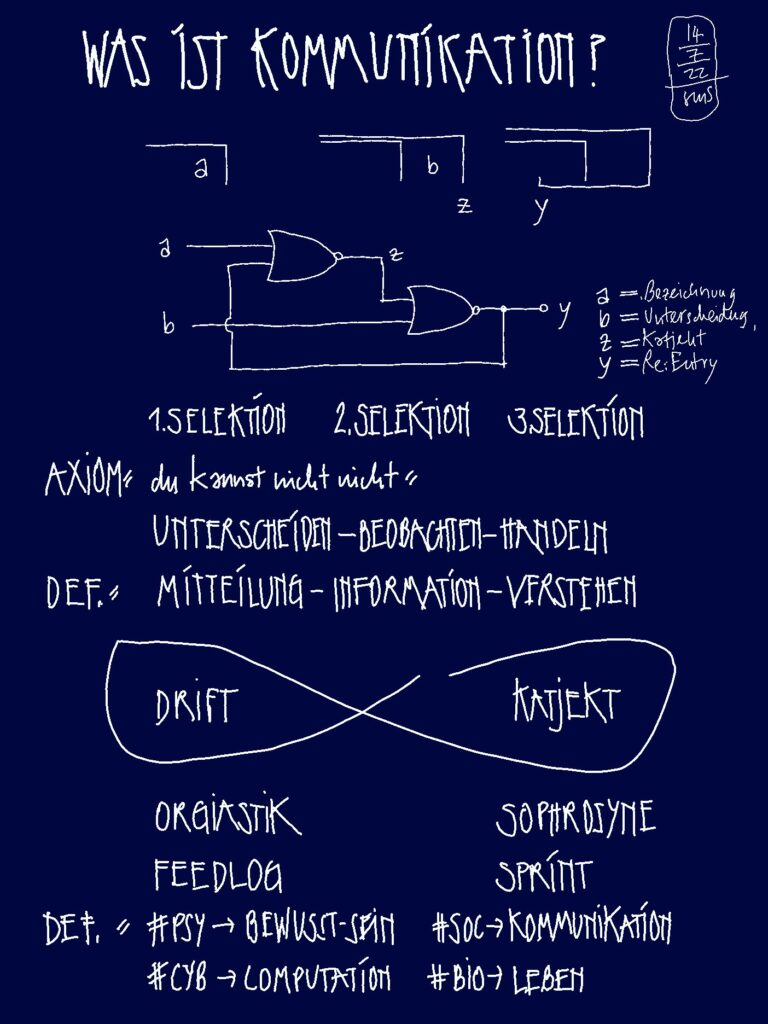 WAS IST KOMMUNIKATION?
14
7
22
sms
a
b
z
y
a
z
b
y
a = Bezeichnung
b = Unterscheidung,
z = Katjekt
y = Re:Entry
1.SELEKTION 2.SELEKTION 3.SELEKTION
AXIOM= du kannst nicht nicht =
UNTERSCHEIDEN-BEOBACHTEN-HANDELN
DEF.= MITTEILUNG-INFORMATION-VERSTEHEN
DRIFT KATJEKT
ORGIASTIK SOPHROSYNE
FEEDLOG SPRINT
DEF. = #PSY→BEWUSST-SEIN #SOC→KOMMUNIKATION
#CYB→COMPUTATION #BIO→LEBEN